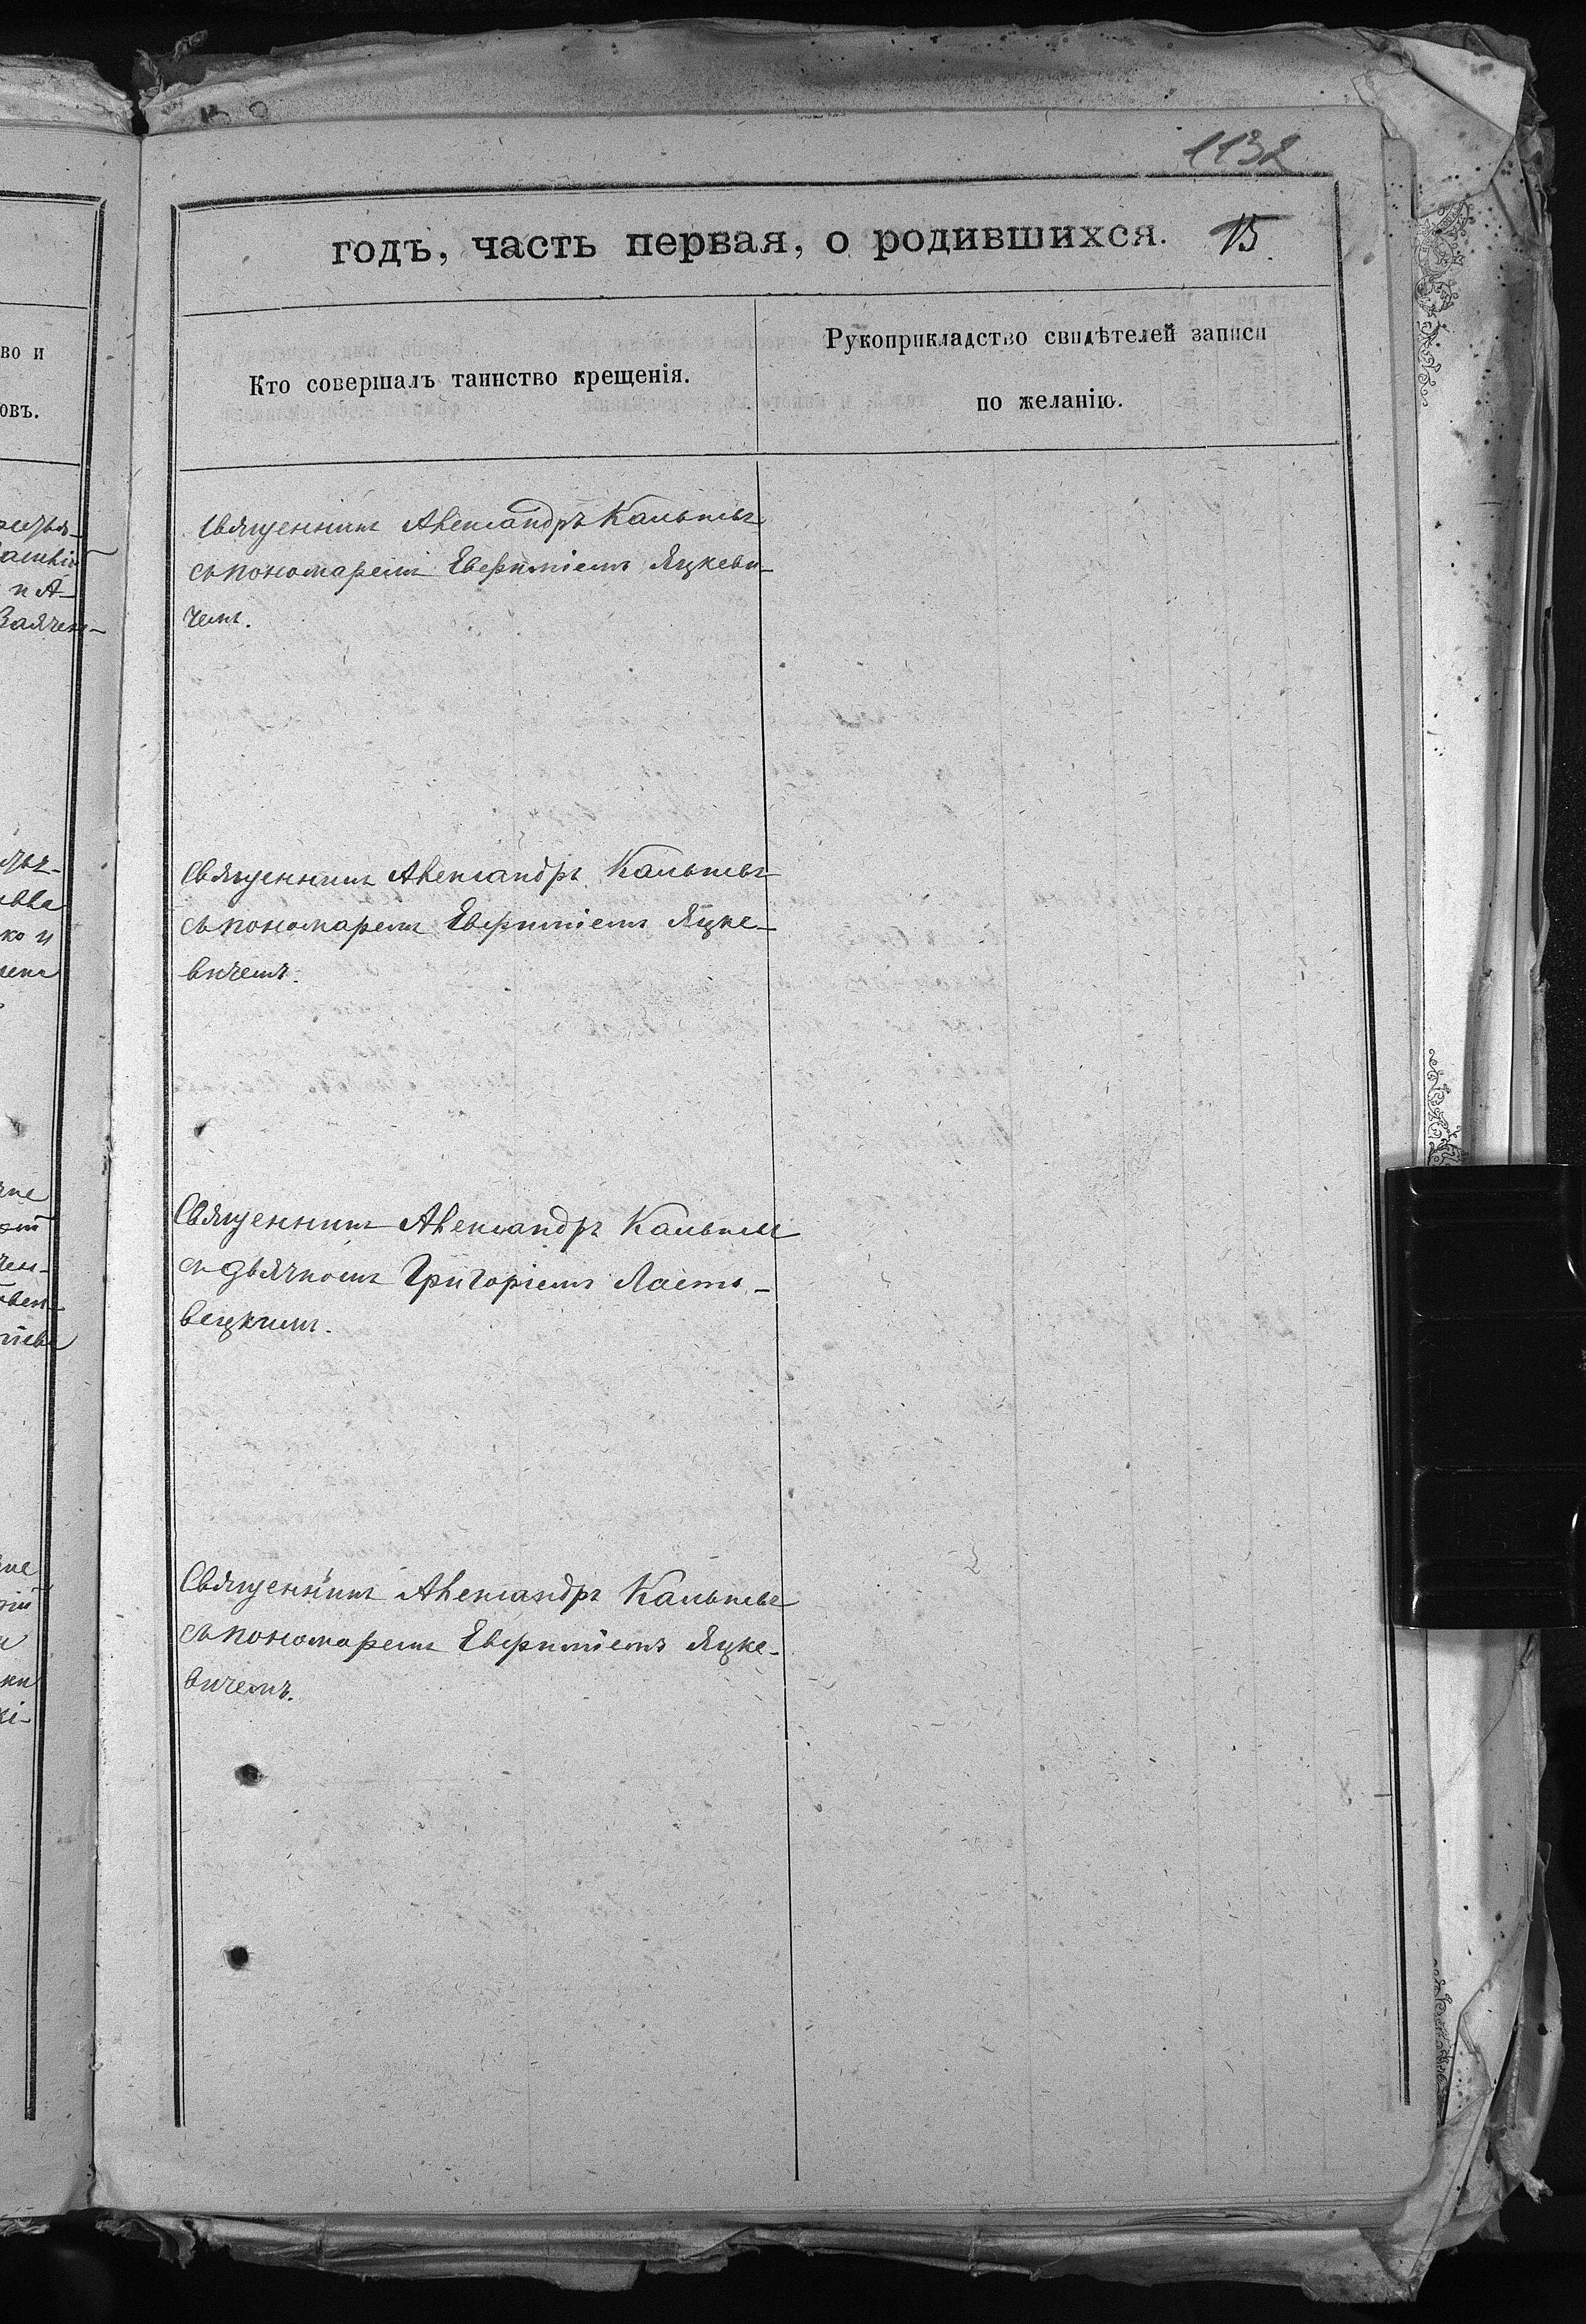 1132
годъ, часть первая, о родившихся. 15
Кто совершалъ таинство крещенія.
Рукоприкладство свидѣтелей записи
по желанію.
во и
овъ.
Священникъ Александръ
съ пономаремъ Евфиміемъ Яцкеви-
чемъ.
Священникъ Александръ
съ пономаремъ Евфиміемъ Яцке-
вичемъ.
Священникъ Александръ
съ дьячкомъ Григоріемъ Ласто-
вецкимъ.
Священникъ Александръ
съ пономаремъ Евфиміемъ Яцке-
вичемъ.